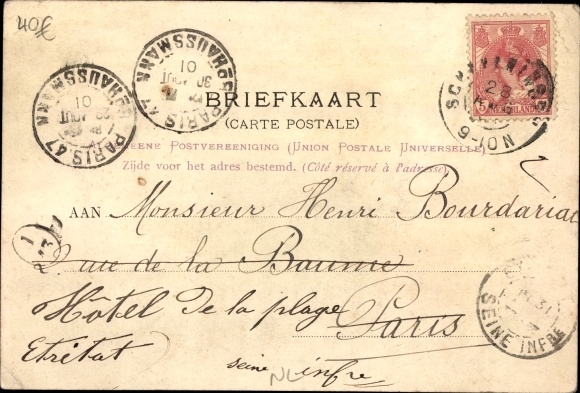 40€
PARIS 47
R. HAUSSMANN
01
30 AOUT
PARIS 47
R. HAUSSMANN
01
29 AOUT
SCHEVENINGEN
28
6-10N
5
NEDERLAND
BRIEFKAART
(CARTE POSTALE)
ALGEMEENE POSTVEREENIGING (UNION POSTALE UNIVERSELLE)
Zijde voor het adres bestemd. (Côté réservé à l'adresse)
AAN Monsieur Henri Bourdariat
1
2 rue de la Baume
Hôtel de la plage Paris
Etretat seine infre
NL
31
SEINE INFRE